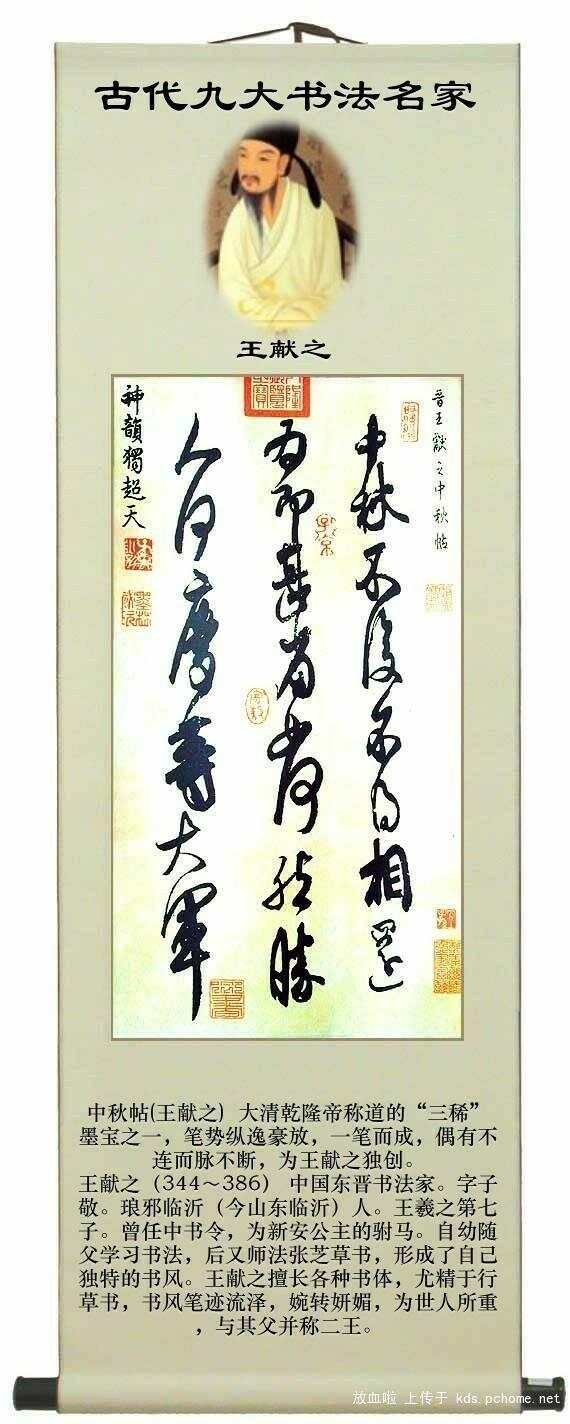 古代九大书法名家
王献之
晋王献之中秋帖
中秋不復不得相還
為即甚省如何然勝
人何慶等大軍
神韻獨超天
中秋帖(王献之) 大清乾隆帝称道的“三稀”
墨宝之一，笔势纵逸豪放，一笔而成，偶有不
连而脉不断，为王献之独创。
王献之（344～386） 中国东晋书法家。字子
敬。琅邪临沂（今山东临沂）人。王羲之第七
子。曾任中书令，为新安公主的驸马。自幼随
父学习书法，后又师法张芝草书，形成了自己
独特的书风。王献之擅长各种书体，尤精于行
草书，书风笔迹流泽，婉转妍媚，为世人所重
，与其父并称二王。
放血啦 上传于 kds.pchome.net